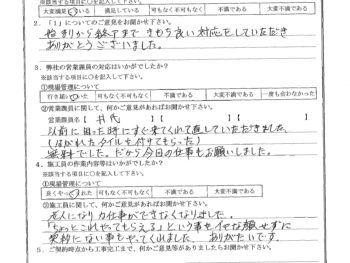 ※該当する項目に○を記入して下さい。
大変満足している 満足している 可も不可もなく 不満である 大変不満である
2.「1」についてのご意見をお聞かせ下さい。
始まりから終了まできもち良い対応をしていただき
ありがとうございました。
3. 弊社の営業職員の対応はいかがでしたか?
※該当する項目に○を記入して下さい。
①現場管理について
行き届いていた 可も不可もなく 不満である 大変不満である 一度も会わなかった
②営業職員に関して、何かご意見があればお聞かせ下さい。
営業職員名( 井氏 )
以前に困った時にすぐ来てくれて直していただきました。
(はがれたタイルを付けてもらった)
無料でした。だから今回の仕事もお願いしました。
4. 施工員の作業内容等はいかがでしたか?
※該当する項目に○を記入して下さい。
①現場管理について
良くやってくれた 可も不可もなく 不満である 大変不満である
②施工員に関して、何かご意見があればお聞かせ下さい。
老人になり力仕事ができなくなりました。
「ちょっとこれやってもらえる」という事もイヤな顔せずに
契約にない事もやってくれました。ありがたいです。
5. ご契約時点から工事完工まで、何かご意見等がありましたらお聞かせ下さい。